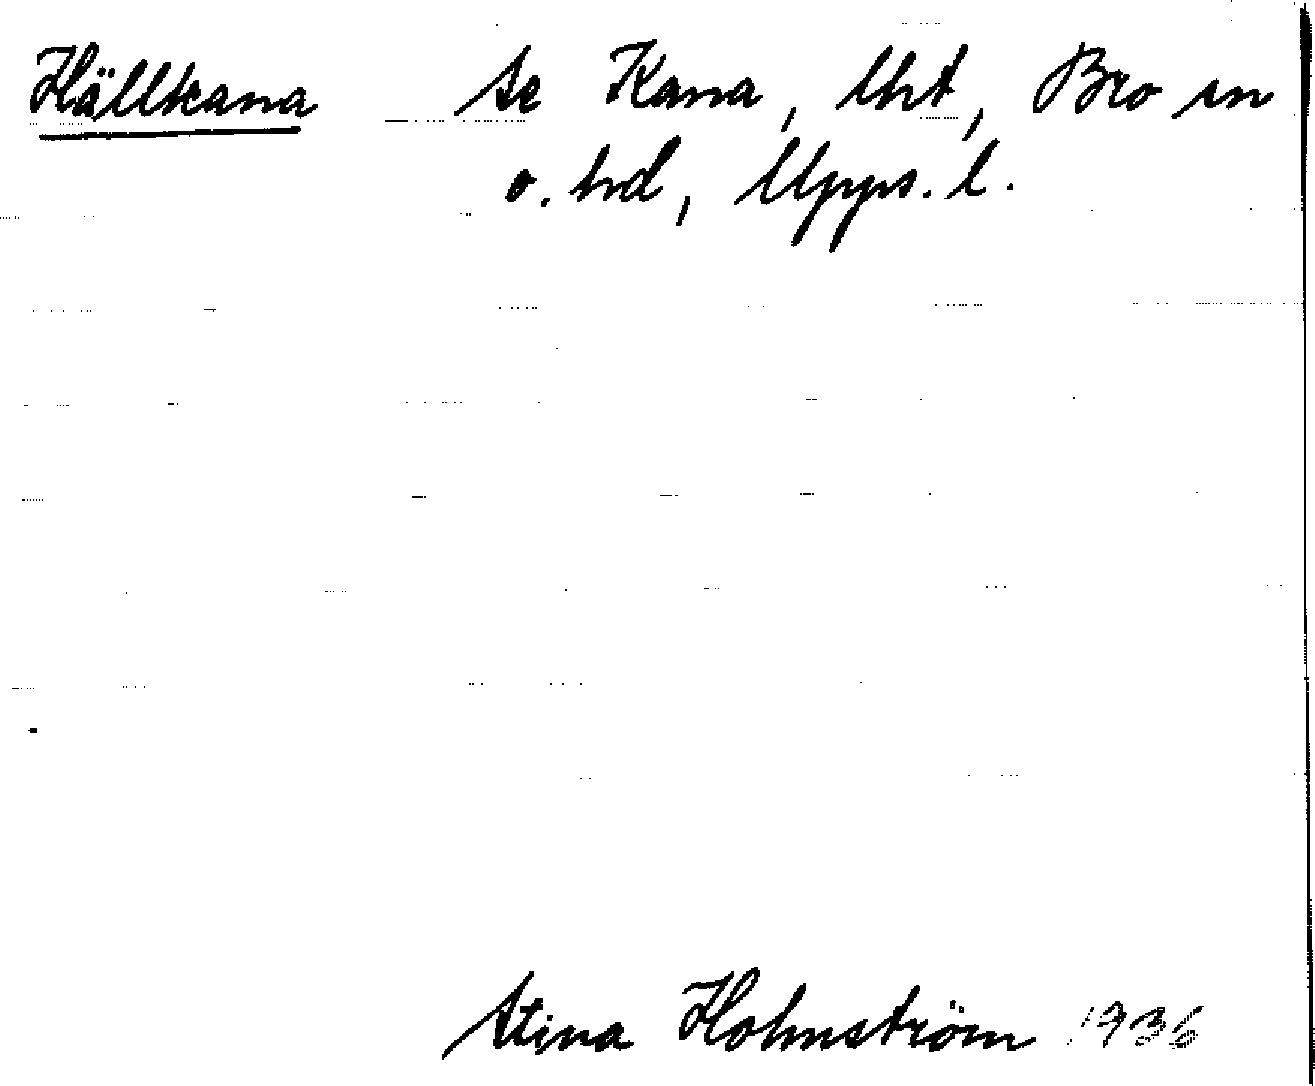 Hällkana se Kana, lht, Bro sn
o. hd, Upps. l.
Stina Holmström 1936